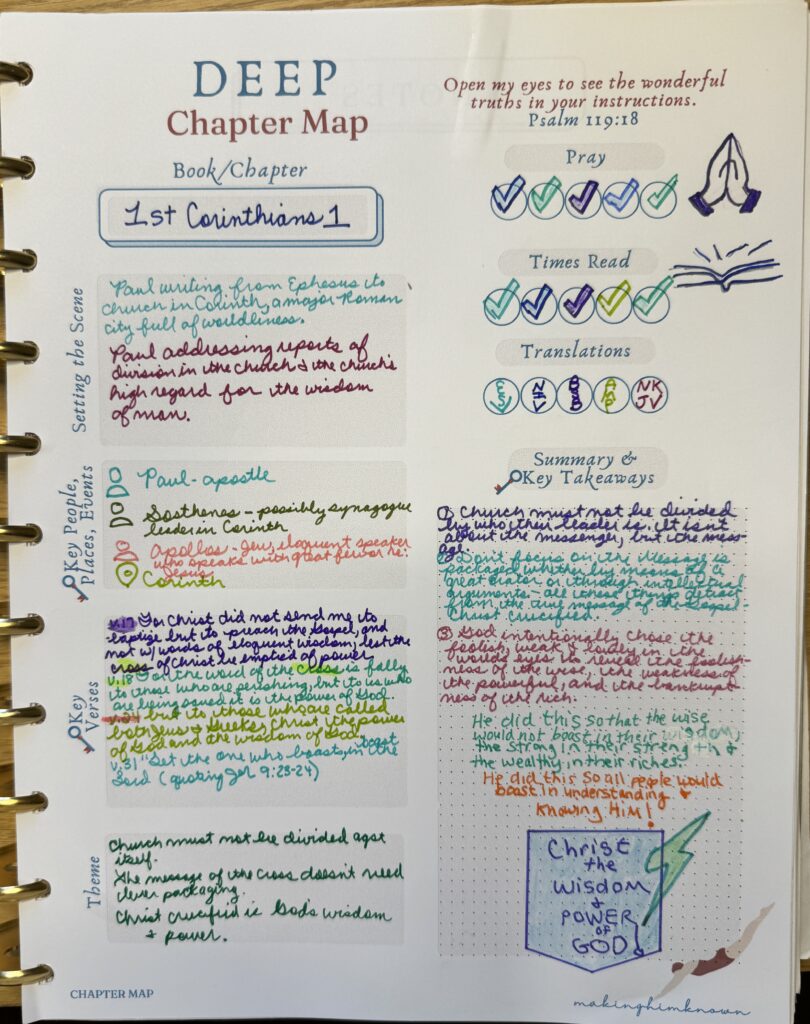 DEEP
Chapter Map
Book/Chapter
1st Corinthians 1
Setting the Scene
Paul writing from Ephesus to
church in Corinth, a major Roman
city full of worldliness.
Paul addressing reports of
division in the church & the church's
high regard for the wisdom
of man.
Key People,
Places, Events
Paul - apostle
Sosthenes - possibly synagogue
leader in Corinth
Apollos - Jew, eloquent speaker
who speaks with great fervor re:
Jesus
Corinth
Key
Verses
v.17 For Christ did not send me to
baptize but to preach the Gospel, and
not w/ words of eloquent wisdom, lest the
cross of Christ be emptied of power.
v.18 For the word of the cross is folly
to those who are perishing, but to us who
are being saved it is the power of God.
but to those who are called
both Jews & Greeks, Christ the power
of God and the wisdom of God.
v.31 "Let the one who boasts, boast in the
Lord (quoting Jer 9:23-24)
Theme
Church must not be divided agst
itself.
The message of the cross doesn't need
clever packaging.
Christ crucified is God's wisdom
& power.
CHAPTER MAP
Open my eyes to see the wonderful
truths in your instructions.
Psalm 119:18
Pray
Times Read
Translations
ESV
AMP
NKJV
Summary &
Key Takeaways
① Church must not be divided
by who their leader is. It isn't
about the messenger, but the mess-
age.
② Don't focus on the message is
packaged whether by means of a
great orator or through intellectual
arguments - all those things detract
from the true message of the Gospel-
Christ crucified.
③ God intentionally chose the
foolish, weak & lowly in the
world's eyes to reveal the foolish-
ness of the wise, the weakness of
the powerful, and the bankrupt-
ness of the rich.
He did this so that the wise
would not boast in their wisdom,
the strong in their strength &
the wealthy in their riches.
He did this so all people would
boast in understanding &
knowing Him!
Christ
the
wisdom
&
POWER
of
GOD
makinghimknown